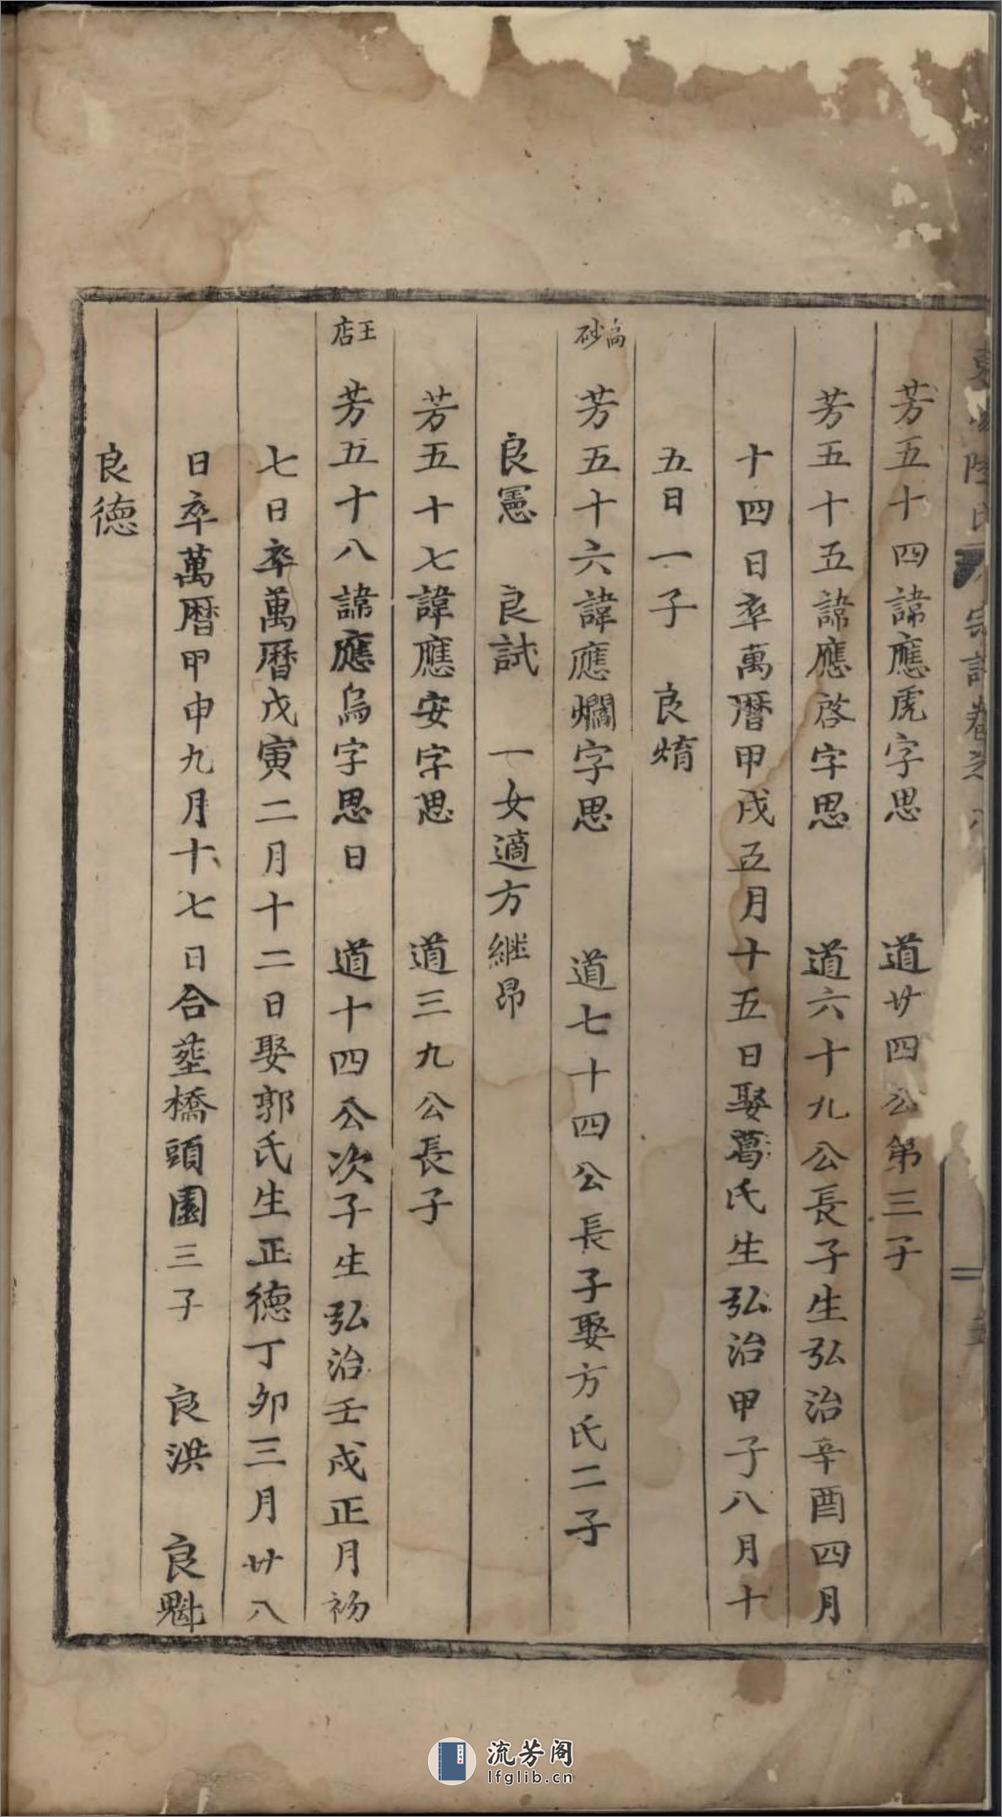 芳五十四諱應虎字思　道廿四公第三子
芳五十五諱應啓字思　道六十九公長子生弘治辛酉四月
十四日卒萬曆甲戌五月十五日娶葛氏生弘治甲子八月十
五日一子　良焴
高砂
芳五十六諱應爛字思　道七十四公長子娶方氏二子
良憲　良試　一女適方継昂
芳五十七諱應安字思　道三九公長子
王店
芳五十八諱應烏字思日　道十四公次子生弘治壬戌正月初
七日卒萬曆戊寅二月十二日娶郭氏生正德丁卯三月廿八
日卒萬曆甲申九月十七日合塟橋頭園三子　良洪　良魁
良德
流芳阁
lfglib.cn